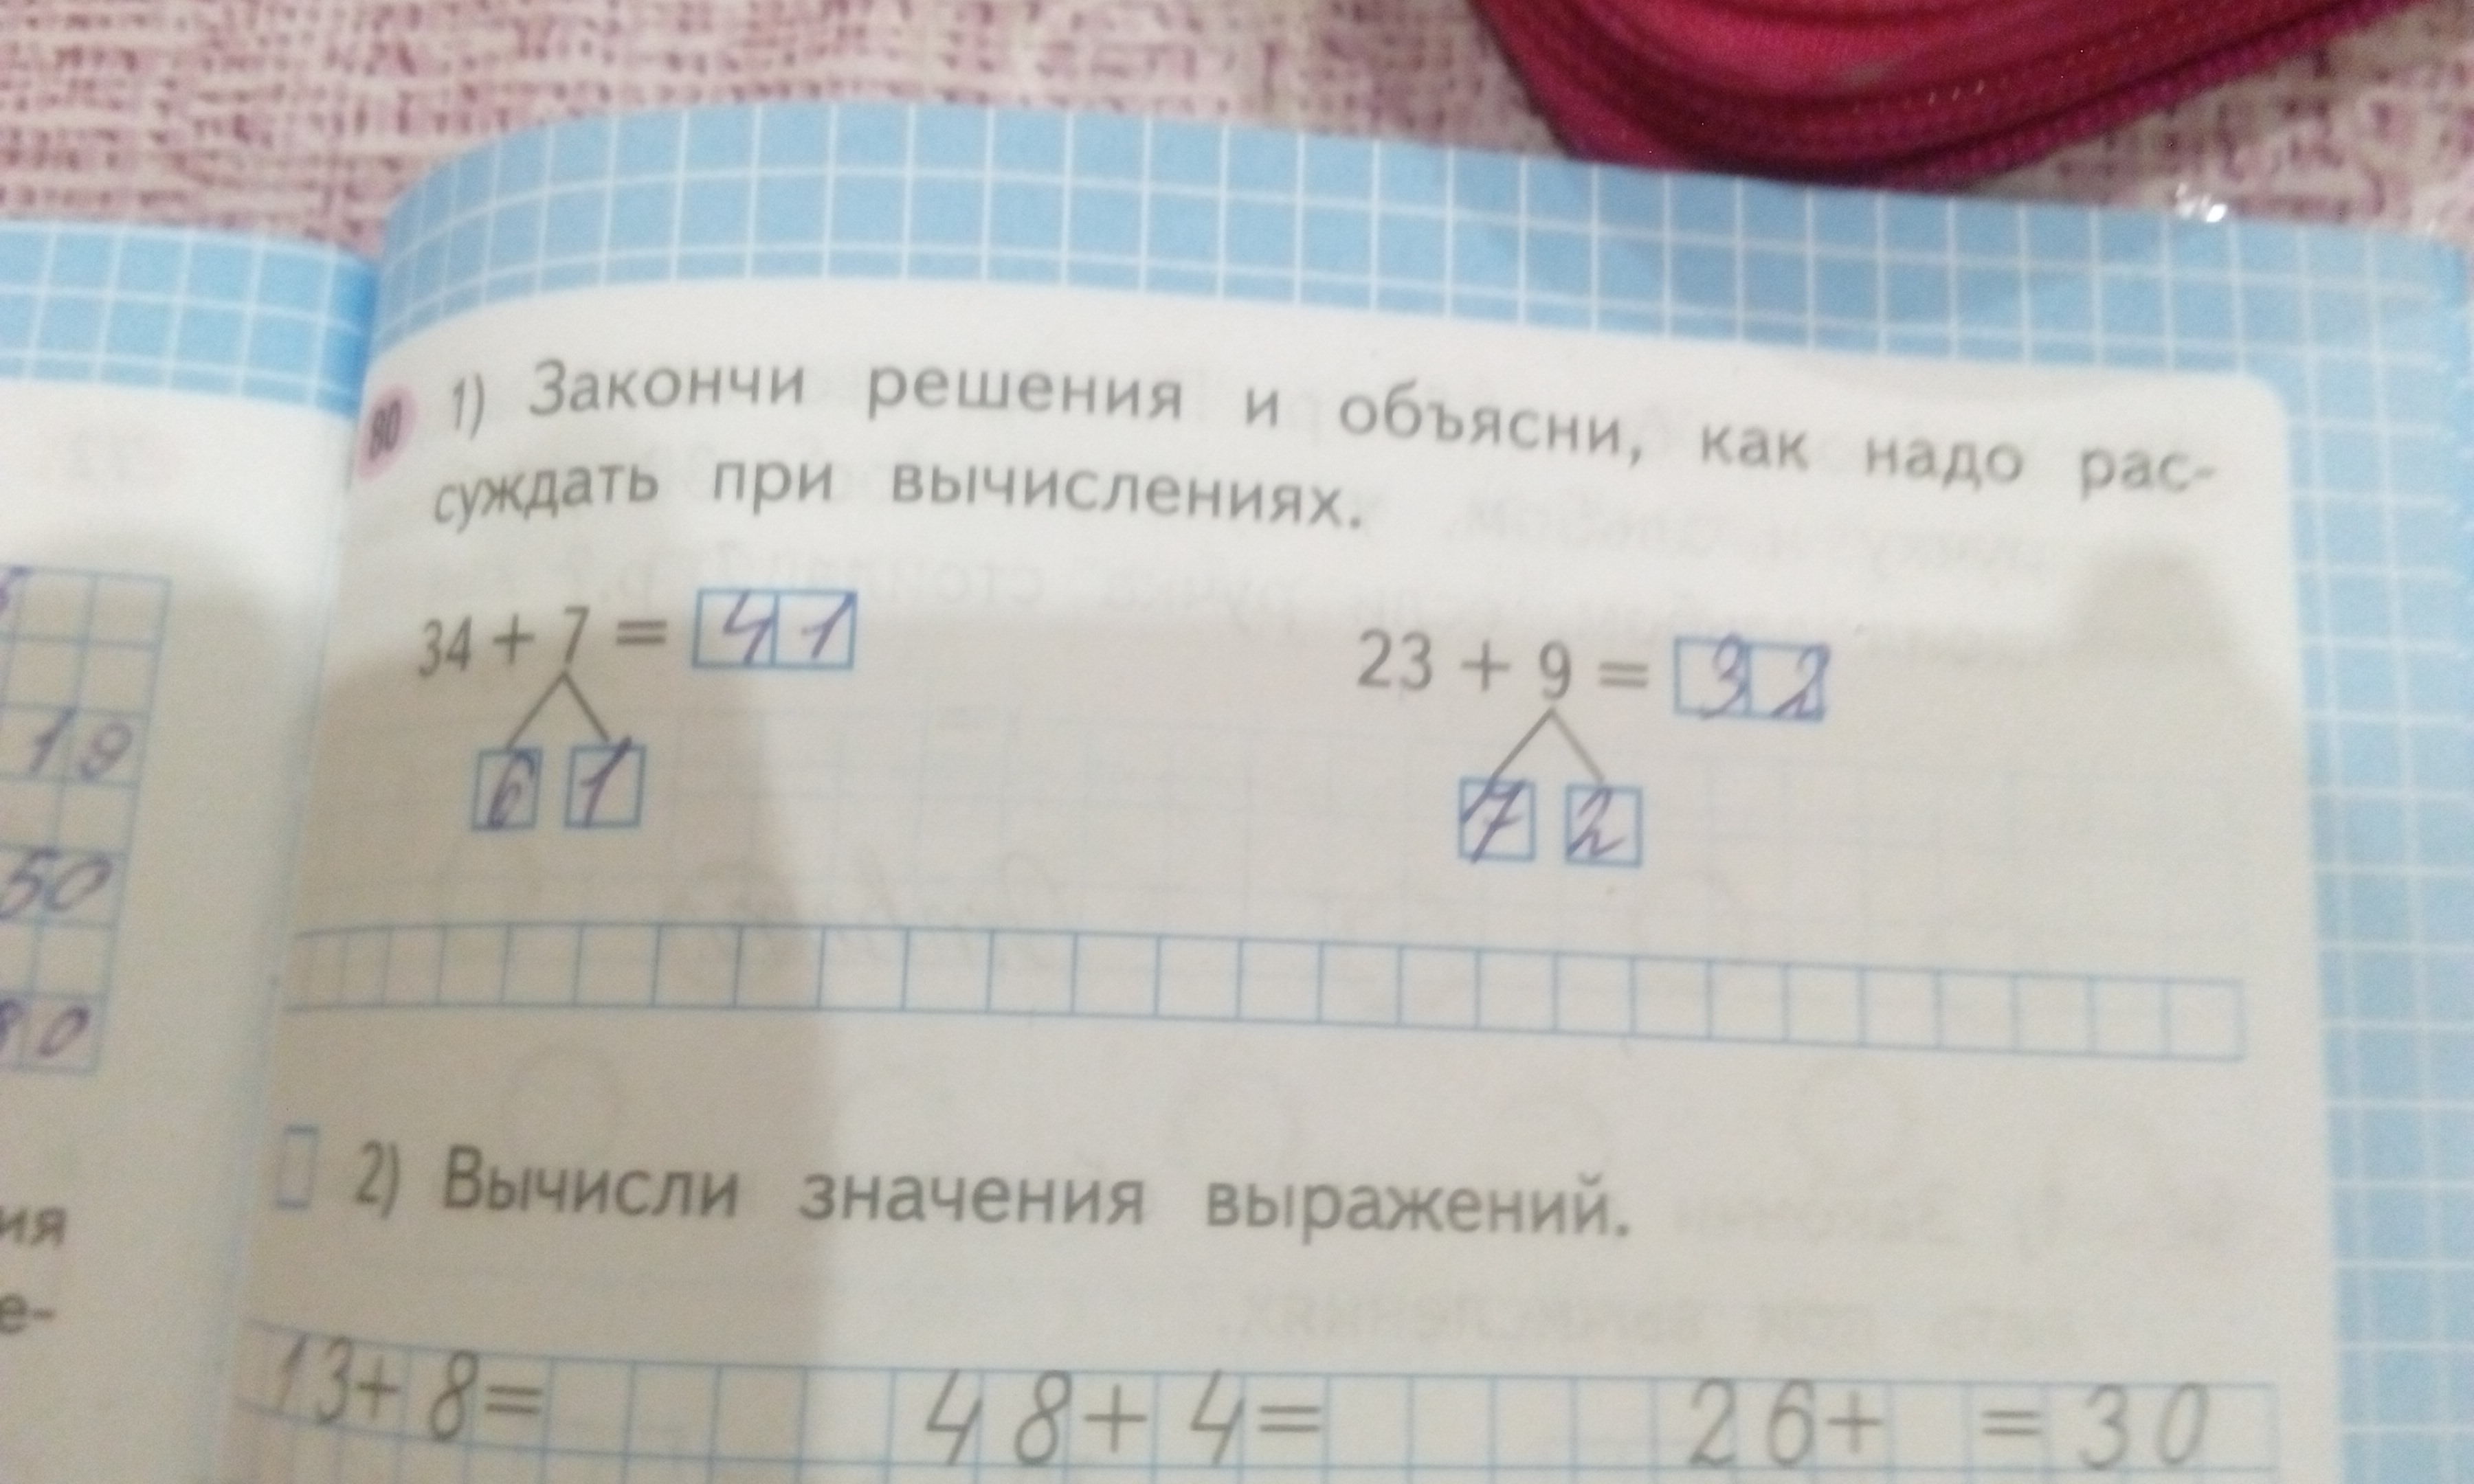 80 1) Закончи решения и объясни, как надо рас-
суждать при вычислениях.
34 + 7 = 41
23 + 9 = 32
6 1
7 2
19
50
0
2) Вычисли значения выражений.
ия
е-
13+8=
48+4=
26+ =30